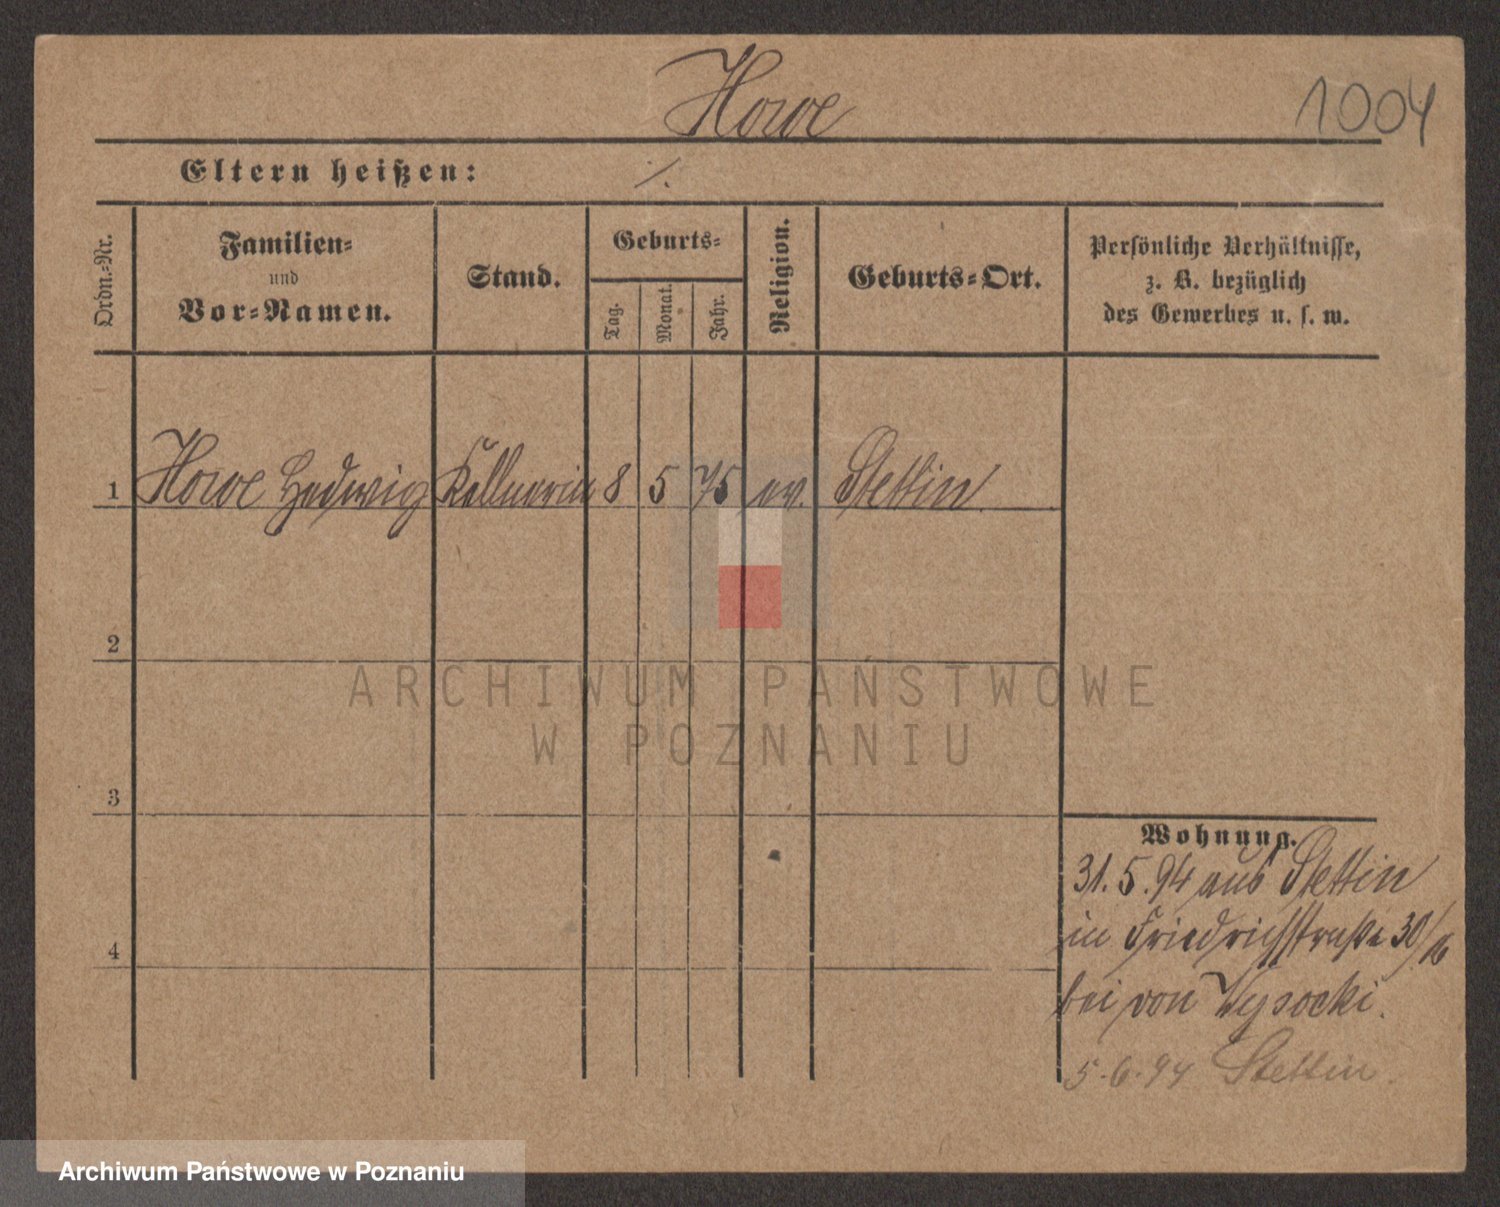 Howe
1004
Eltern heißen: ./.
Ordn.-Nr.
Familien-
und
Vor-Namen.
Stand.
Geburts-
Tag.
Monat.
Jahr.
Religion.
Geburts-Ort.
Persönliche Verhältnisse,
z. B. bezüglich
des Gewerbes u. s. w.
1 Howe Hedwig Kellnerin 8 5 75 ev. Stettin
2
3
4
Wohnung.
31.5.94 aus Stettin
in Friedrichstraße 30/
bei von Wysocki.
5.6.94 Stettin.
ARCHIWUM PAŃSTWOWE
W POZNANIU
Archiwum Państwowe w Poznaniu